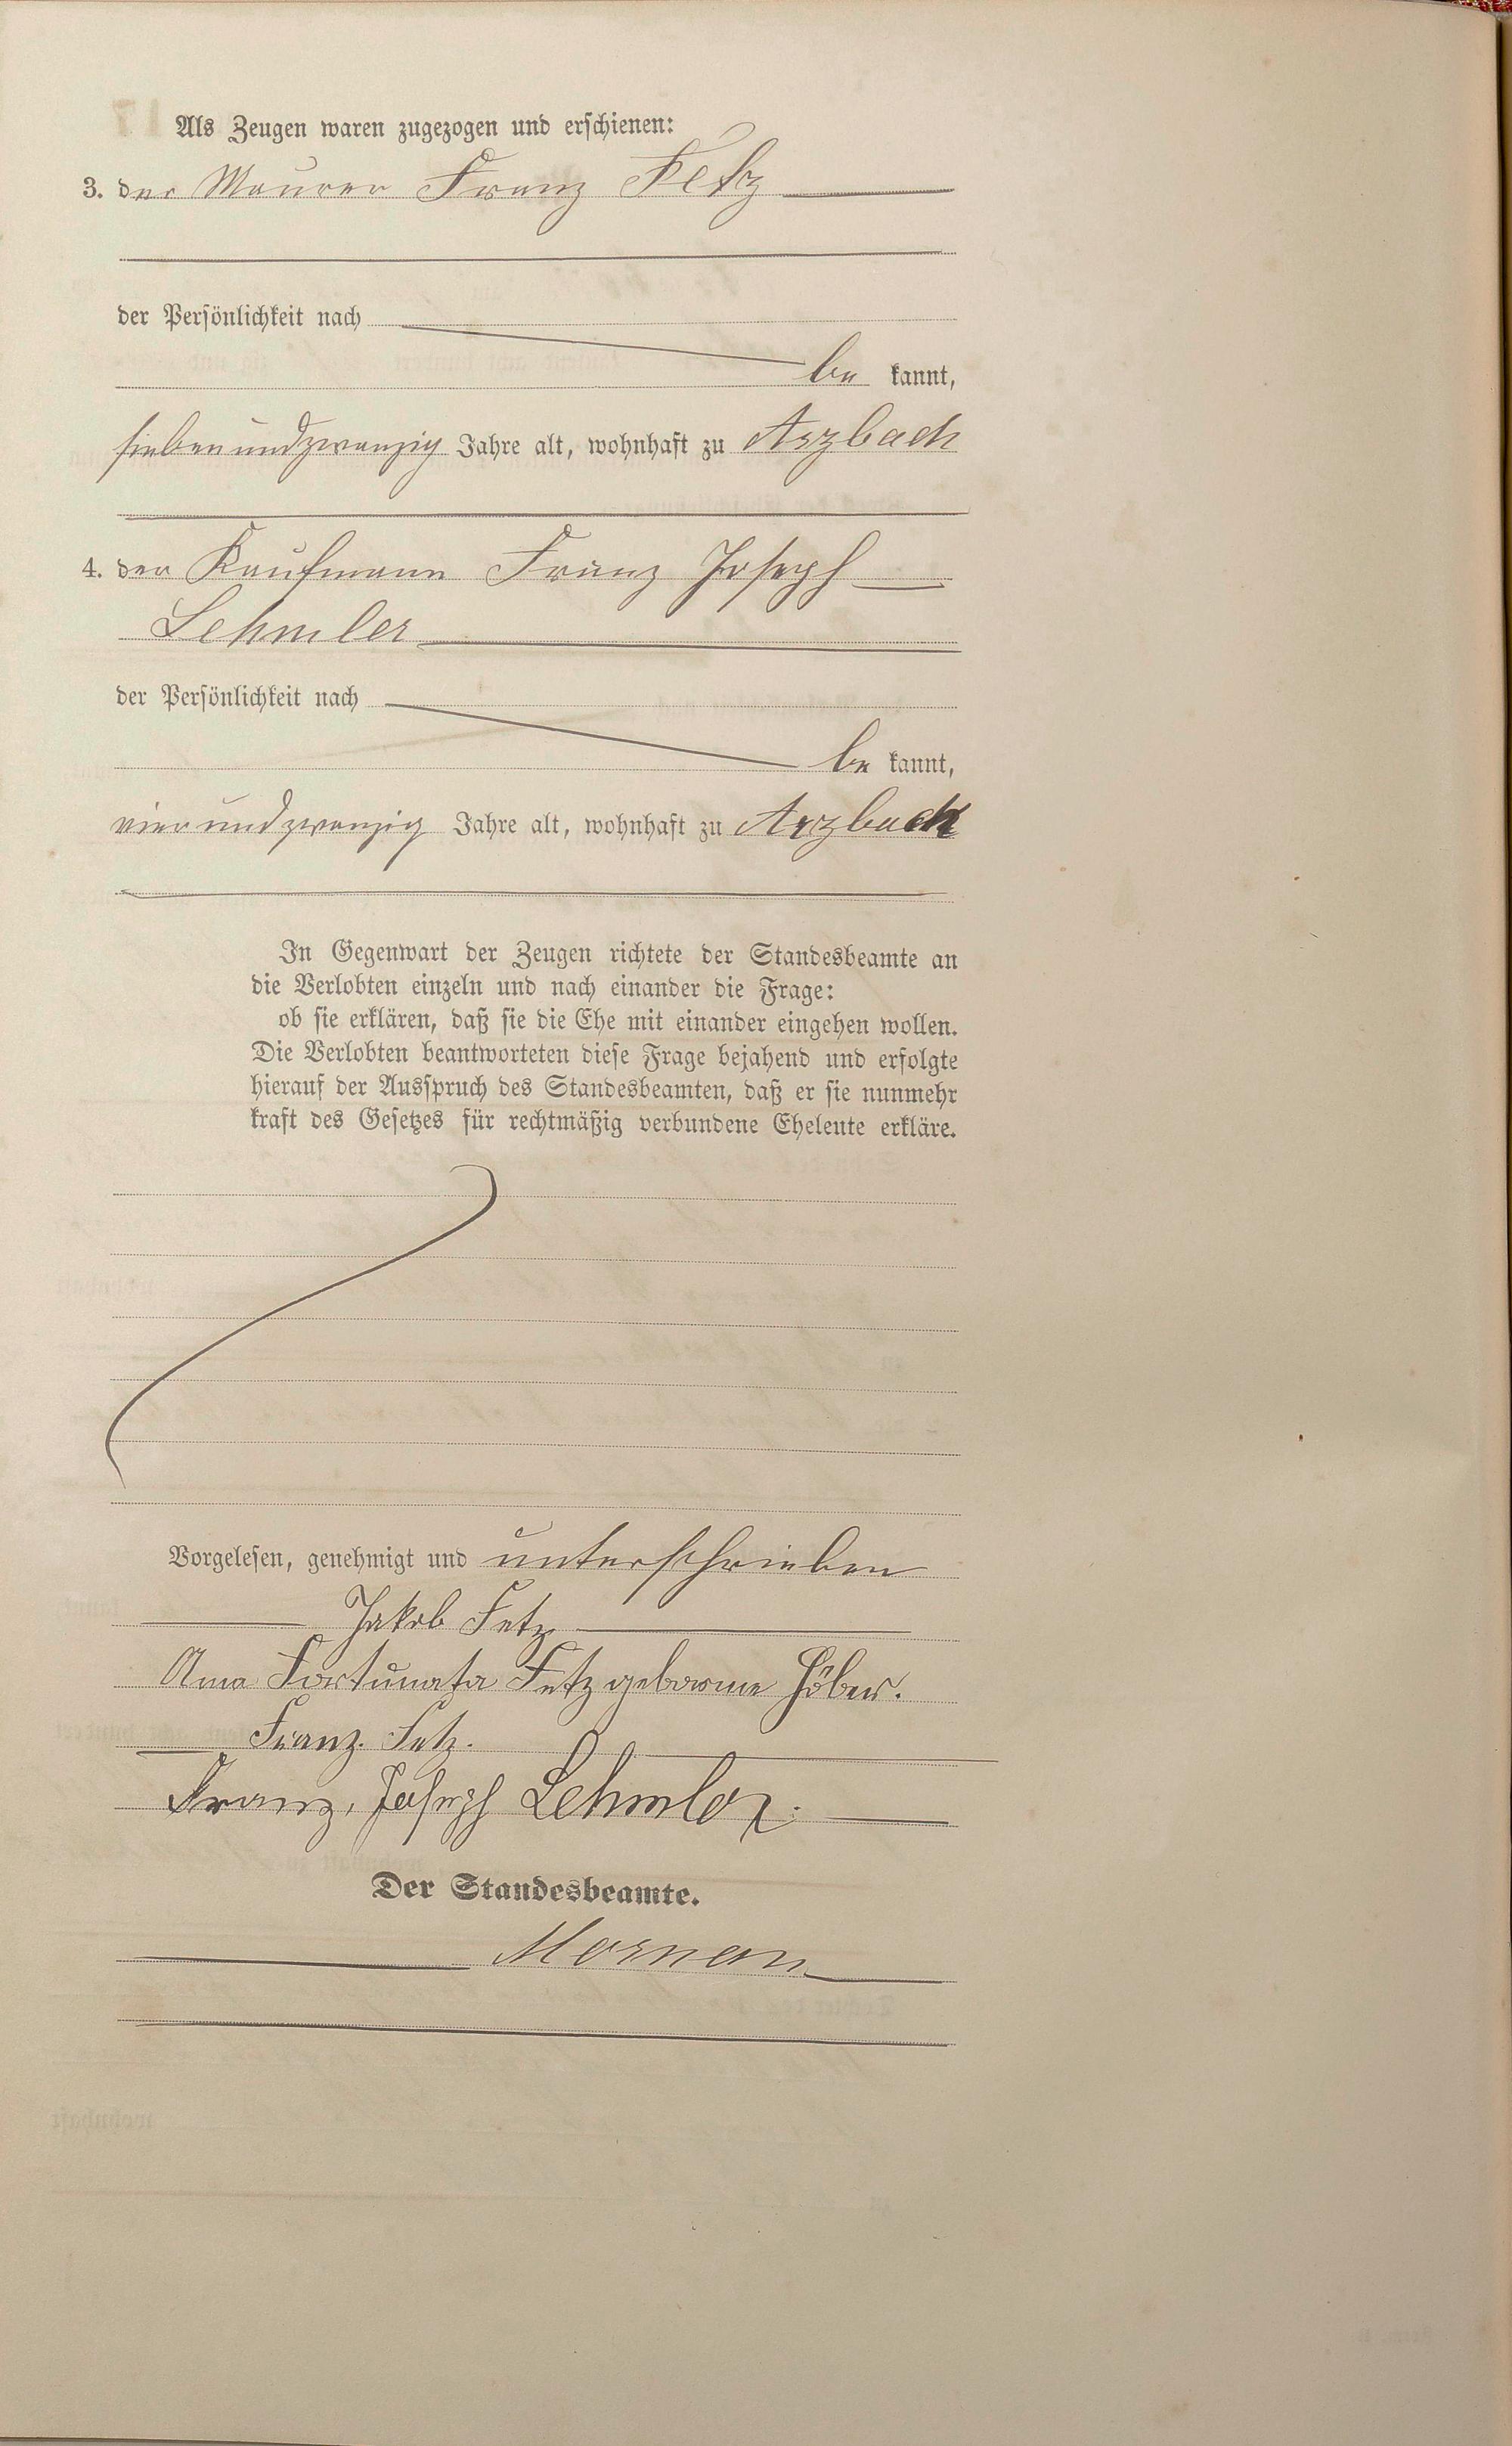 Als Zeugen waren zugezogen und erschienen:
3. der Maurer Franz Fetz
der Persönlichkeit nach
be kannt,
siebenundzwanzig Jahre alt, wohnhaft zu Arzbach
4. der Kaufmann Franz Joseph
Lehmler
der Persönlichkeit nach
be kannt,
vierundzwanzig Jahre alt, wohnhaft zu Arzbach
In Gegenwart der Zeugen richtete der Standesbeamte an
die Verlobten einzeln und nach einander die Frage:
ob sie erklären, daß sie die Ehe mit einander eingehen wollen.
Die Verlobten beantworteten diese Frage bejahend und erfolgte
hierauf der Ausspruch des Standesbeamten, daß er sie nunmehr
kraft des Gesetzes für rechtmäßig verbundene Eheleute erkläre.
Vorgelesen, genehmigt und unterschrieben
Jakob Fetz
Anna Fortunata Fetz geborene Höber.
Franz. Fetz.
Franz, Joseph Lehmler.
Der Standesbeamte.